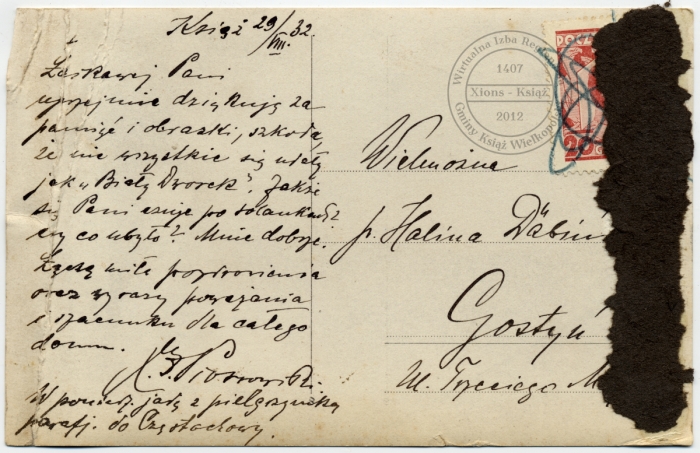 Książ 29/VIII. 32
Łaskawej Pani
uprzejmie dziękuję za
pamięć i obrazki, szkoda,
że nie wszystkie się udały
jak „Biały Dworek”. Jakże
się Pani czuje po solankach?
czy co ubyło? Mnie dobrze.
Łączę miłe pozdrowienia
oraz wyrazy poważania
i szacunku dla całego
domu.
Piotrowski.
W poniedz. jadę z pielgrzymką
parafj. do Częstochowy.
Wirtualna Izba
1407
Xions - Książ
2012
Gminy Książ Wielkopolski
Wielmożna
p. Halina
Gostyń
ul. Trzeciego M